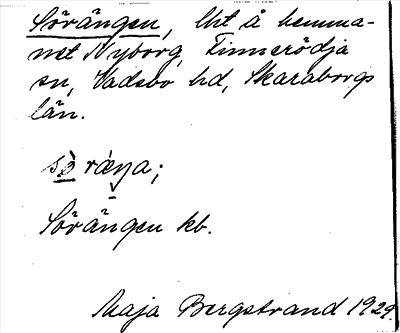 Sörängen, lht å hemma-
net Nyborg, Tinnerödja
sn, Vadsbo hd, Skaraborgs
län.
sö̀ räŋa;
Sörängen kb.
Maja Bergstrand 1929.